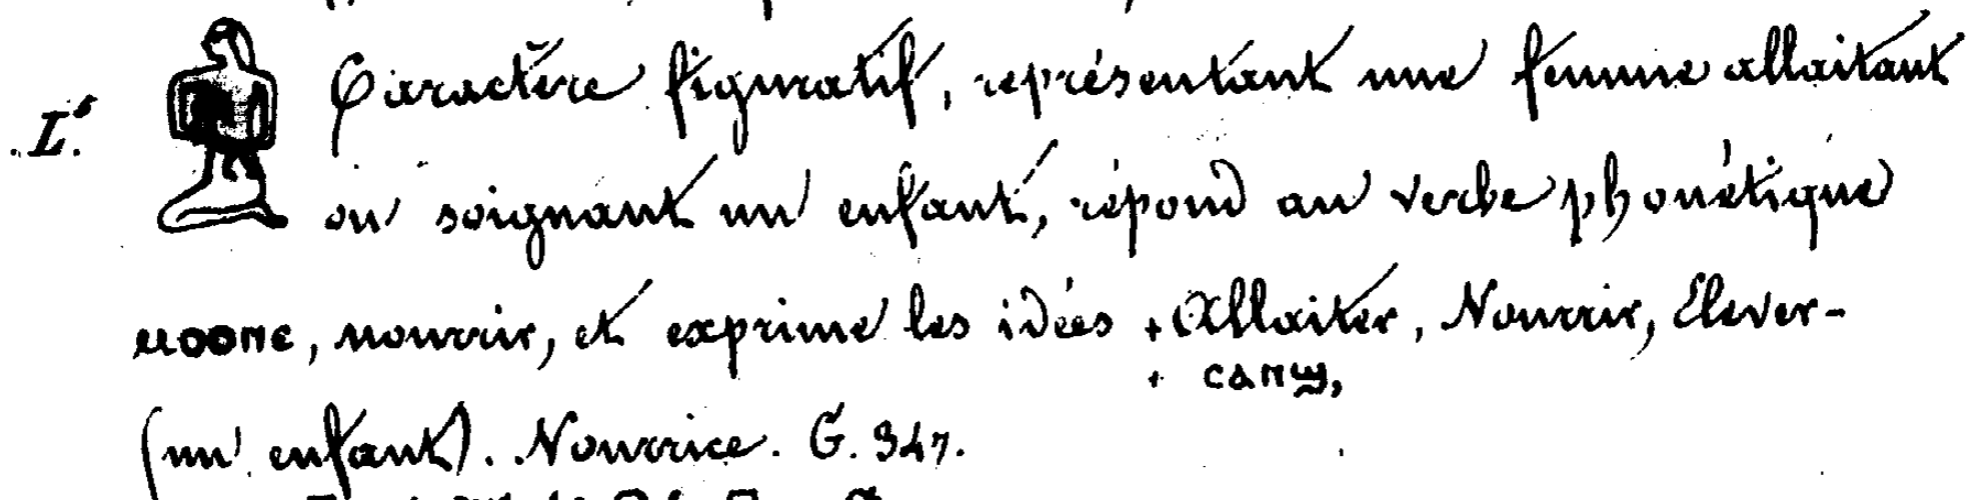 L.⁵ Caractère figuratif, représentant une femme allaitant
ou soignant un enfant, répond au verbe phonétique
ⲙⲟⲟⲛⲉ, nourrir, et exprime les idées + Allaiter, Nourrir, Elever-
+ ⲥⲁⲛϣ,
(un enfant). Nourrice. G. 347.